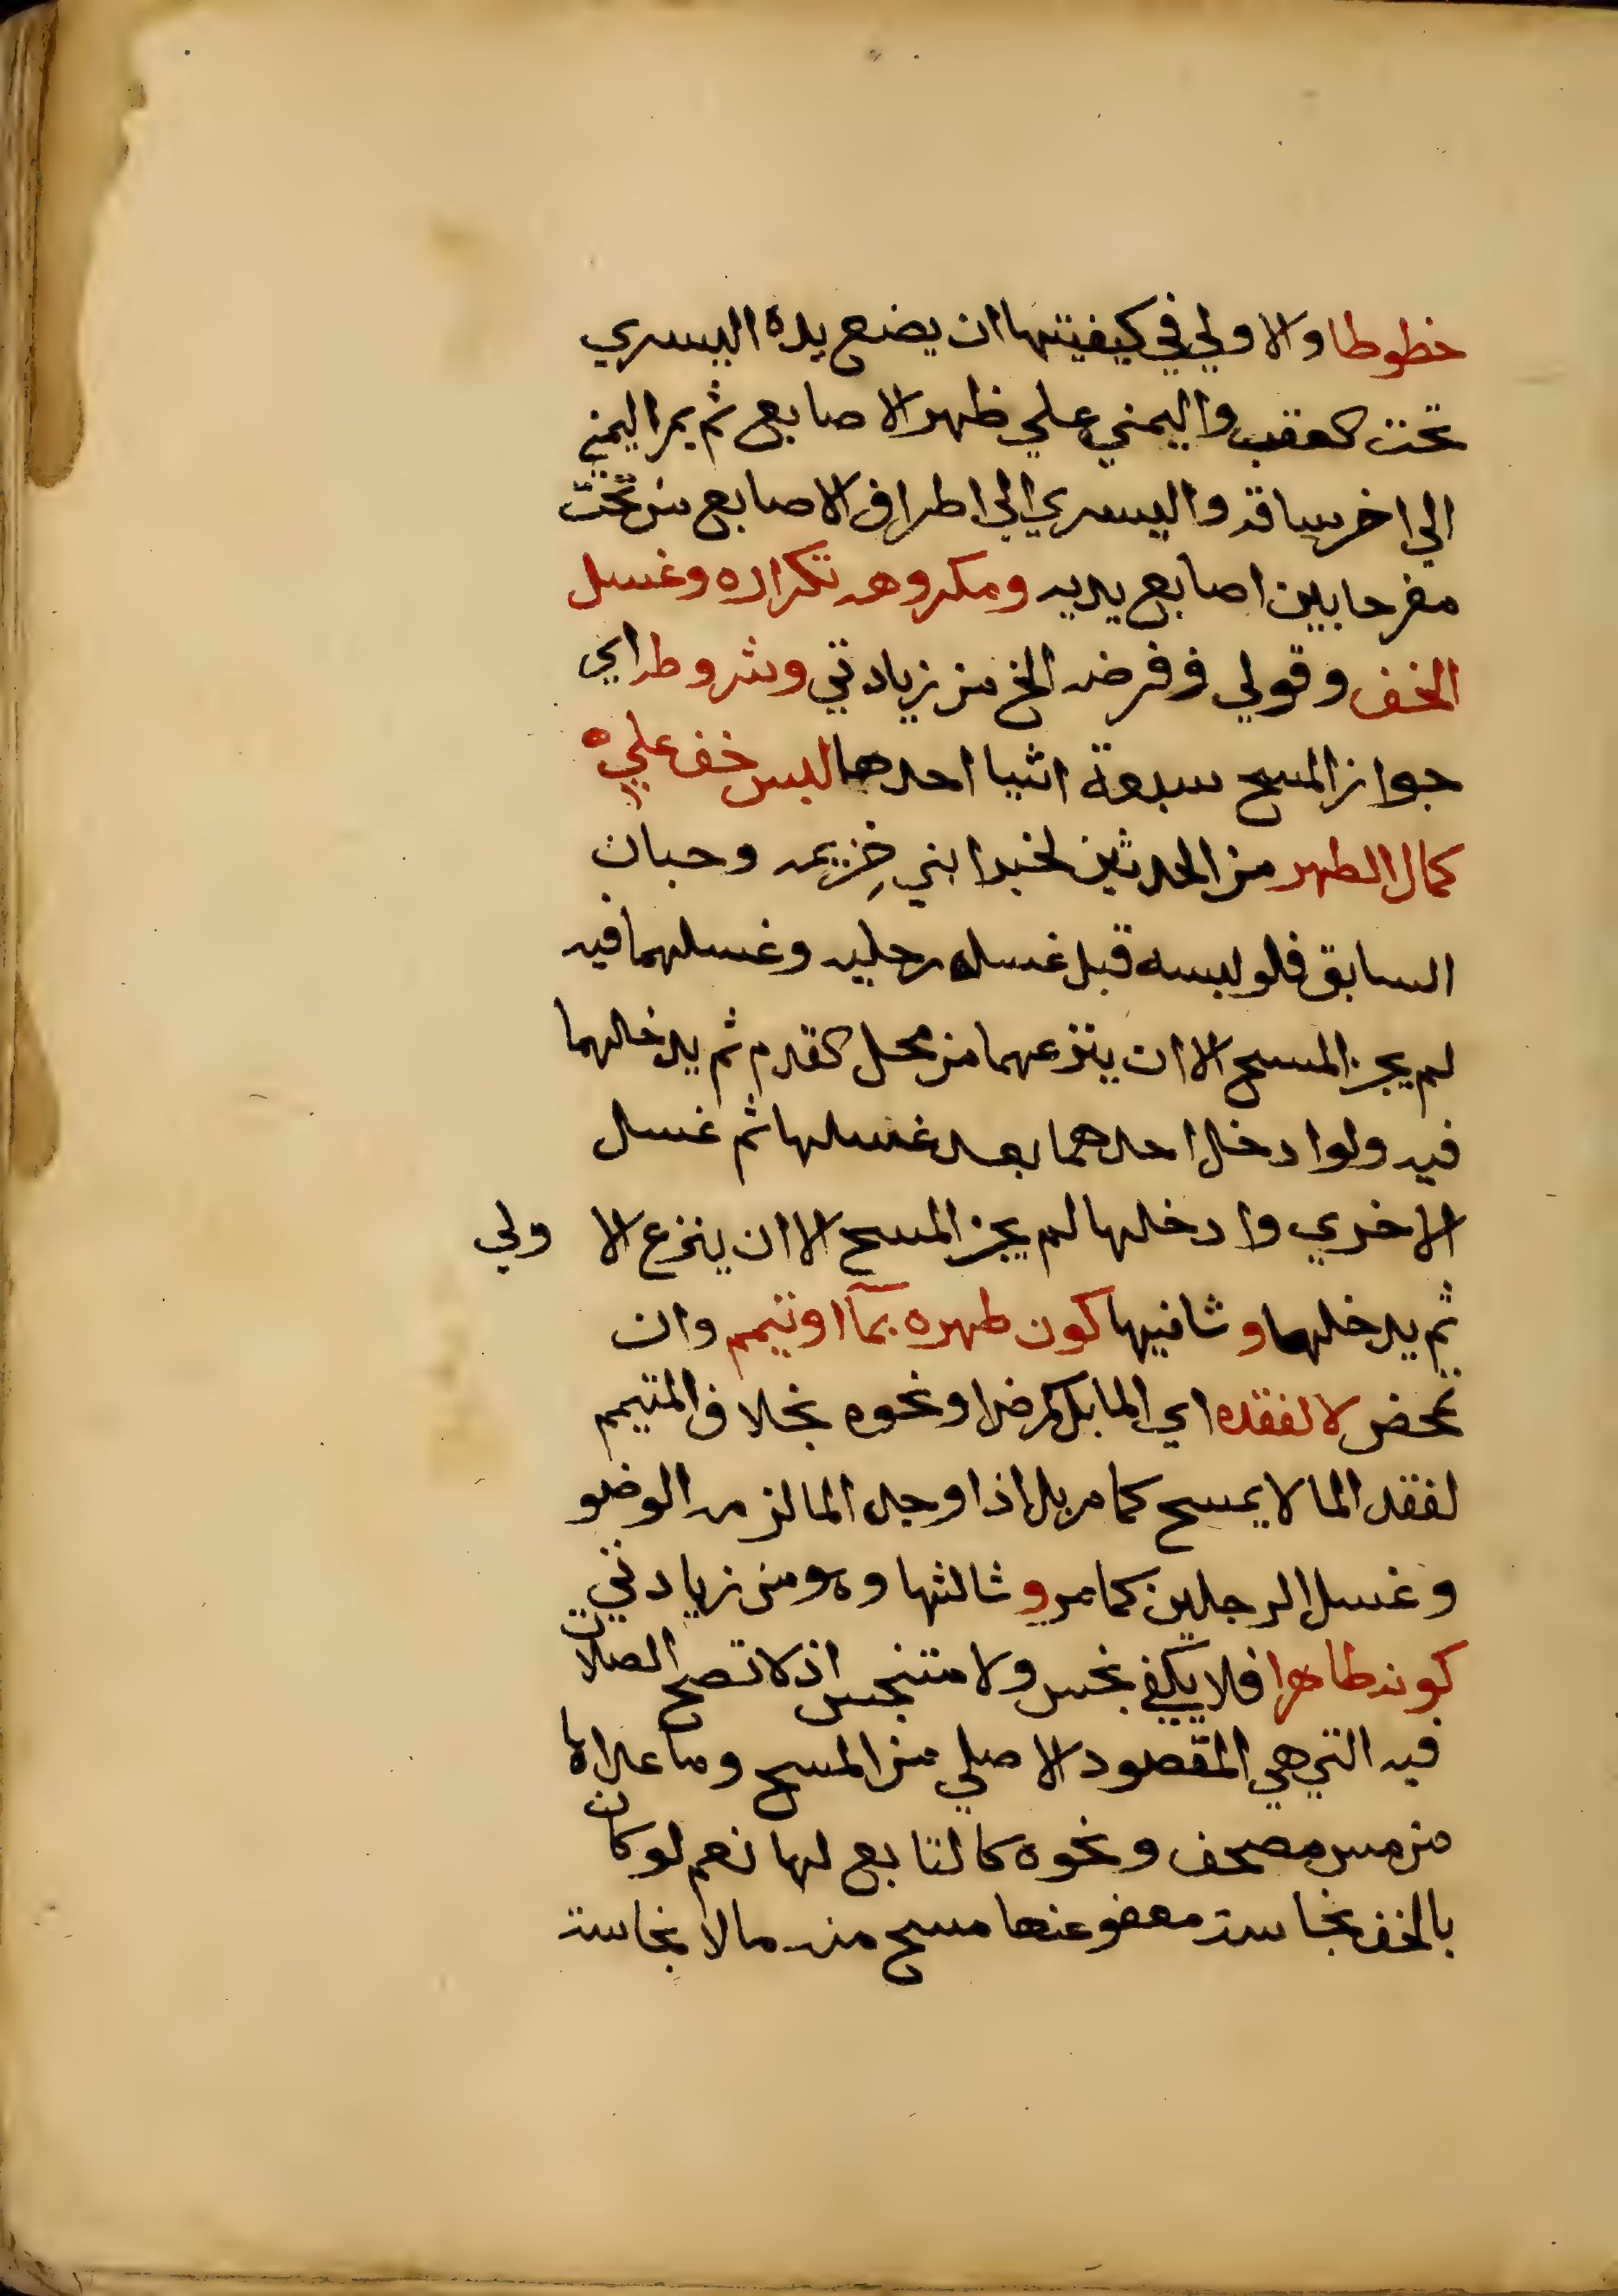 خطوطا والاولي في كيفيتها ان يضع يده اليسري
تحت العقب واليمني علي ظهر الاصابع ثم يمر اليمني
الي اخر ساقه واليسري الي اطراف الاصابع من تحت
مفرجا بين اصابع يديه ومكروهه تكراره وغسل
الخف وقولي وفرضه الخ من زيادتي وشروطه اي
جواز المسح سبعة اشيا احدها لبس خف علي
كمال الطهر من الحدثين لخبر ابني خزيمه وحبان
السابق فلو لبسه قبل غسله رجليه وغسلهما فيه
لم يجز المسح الا ان ينزعهما من محل القدم ثم يدخلهما
فيه ولو ادخل احدهما بعد غسلها ثم غسل
الاخري وادخلها لم يجز المسح الا ان ينزع الاولي
ثم يدخلهما وثانيها كون طهره بمآ او تيمم وان
تمحض لا لفقده اي الما بل كمرض او نحوه بخلاف المتيمم
لفقد الما لا يمسح كما مر بل اذا وجد الما لزمه الوضو
وغسل الرجلين كما مر وثالثها وهو من زيادتي
كونه طاهرا فلا يكفي نجس ولا متنجس اذ لا تصح الصلاة
فيه التي هي المقصود الاصلي من المسح وما عداها
من مس مصحف ونحوه كالتابع لها نعم لو كان
بالخف نجاسة معفو عنها مسح منه ما لا نجاسة